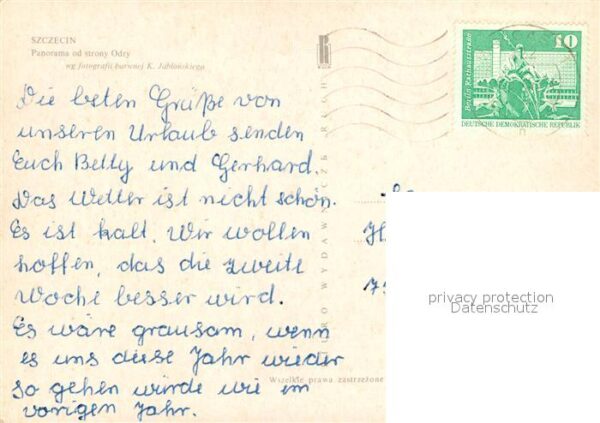 SZCZECIN
Panorama od strony Odry
wg fotografii barwnej K. Jabłońskiego
Die beten Grüße von
unseren Urlaub senden
Euch Betty und Gerhard.
Das Wetter ist nicht schön.
Es ist kalt. Wir wollen
hoffen, das die zweite
Woche besser wird.
Es wäre grausam, wenn
es uns diese Jahr wieder
so gehen würde wie im
vorigen Jahr.
Wszelkie prawa zastrzeżone
BIURO WYDAWNICZE RUCH
10
Berlin, Rathausstraße
DEUTSCHE DEMOKRATISCHE REPUBLIK
privacy protection
Datenschutz